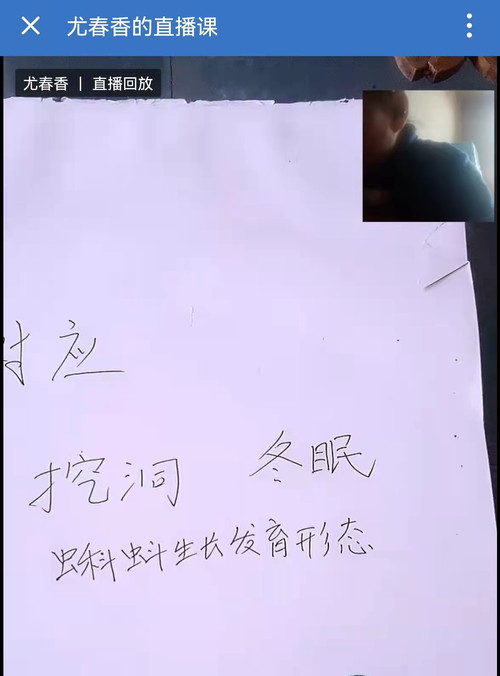 尤春香的直播课
尤春香 | 直播回放
应
挖洞 冬眠
蝌蚪生长发育形态